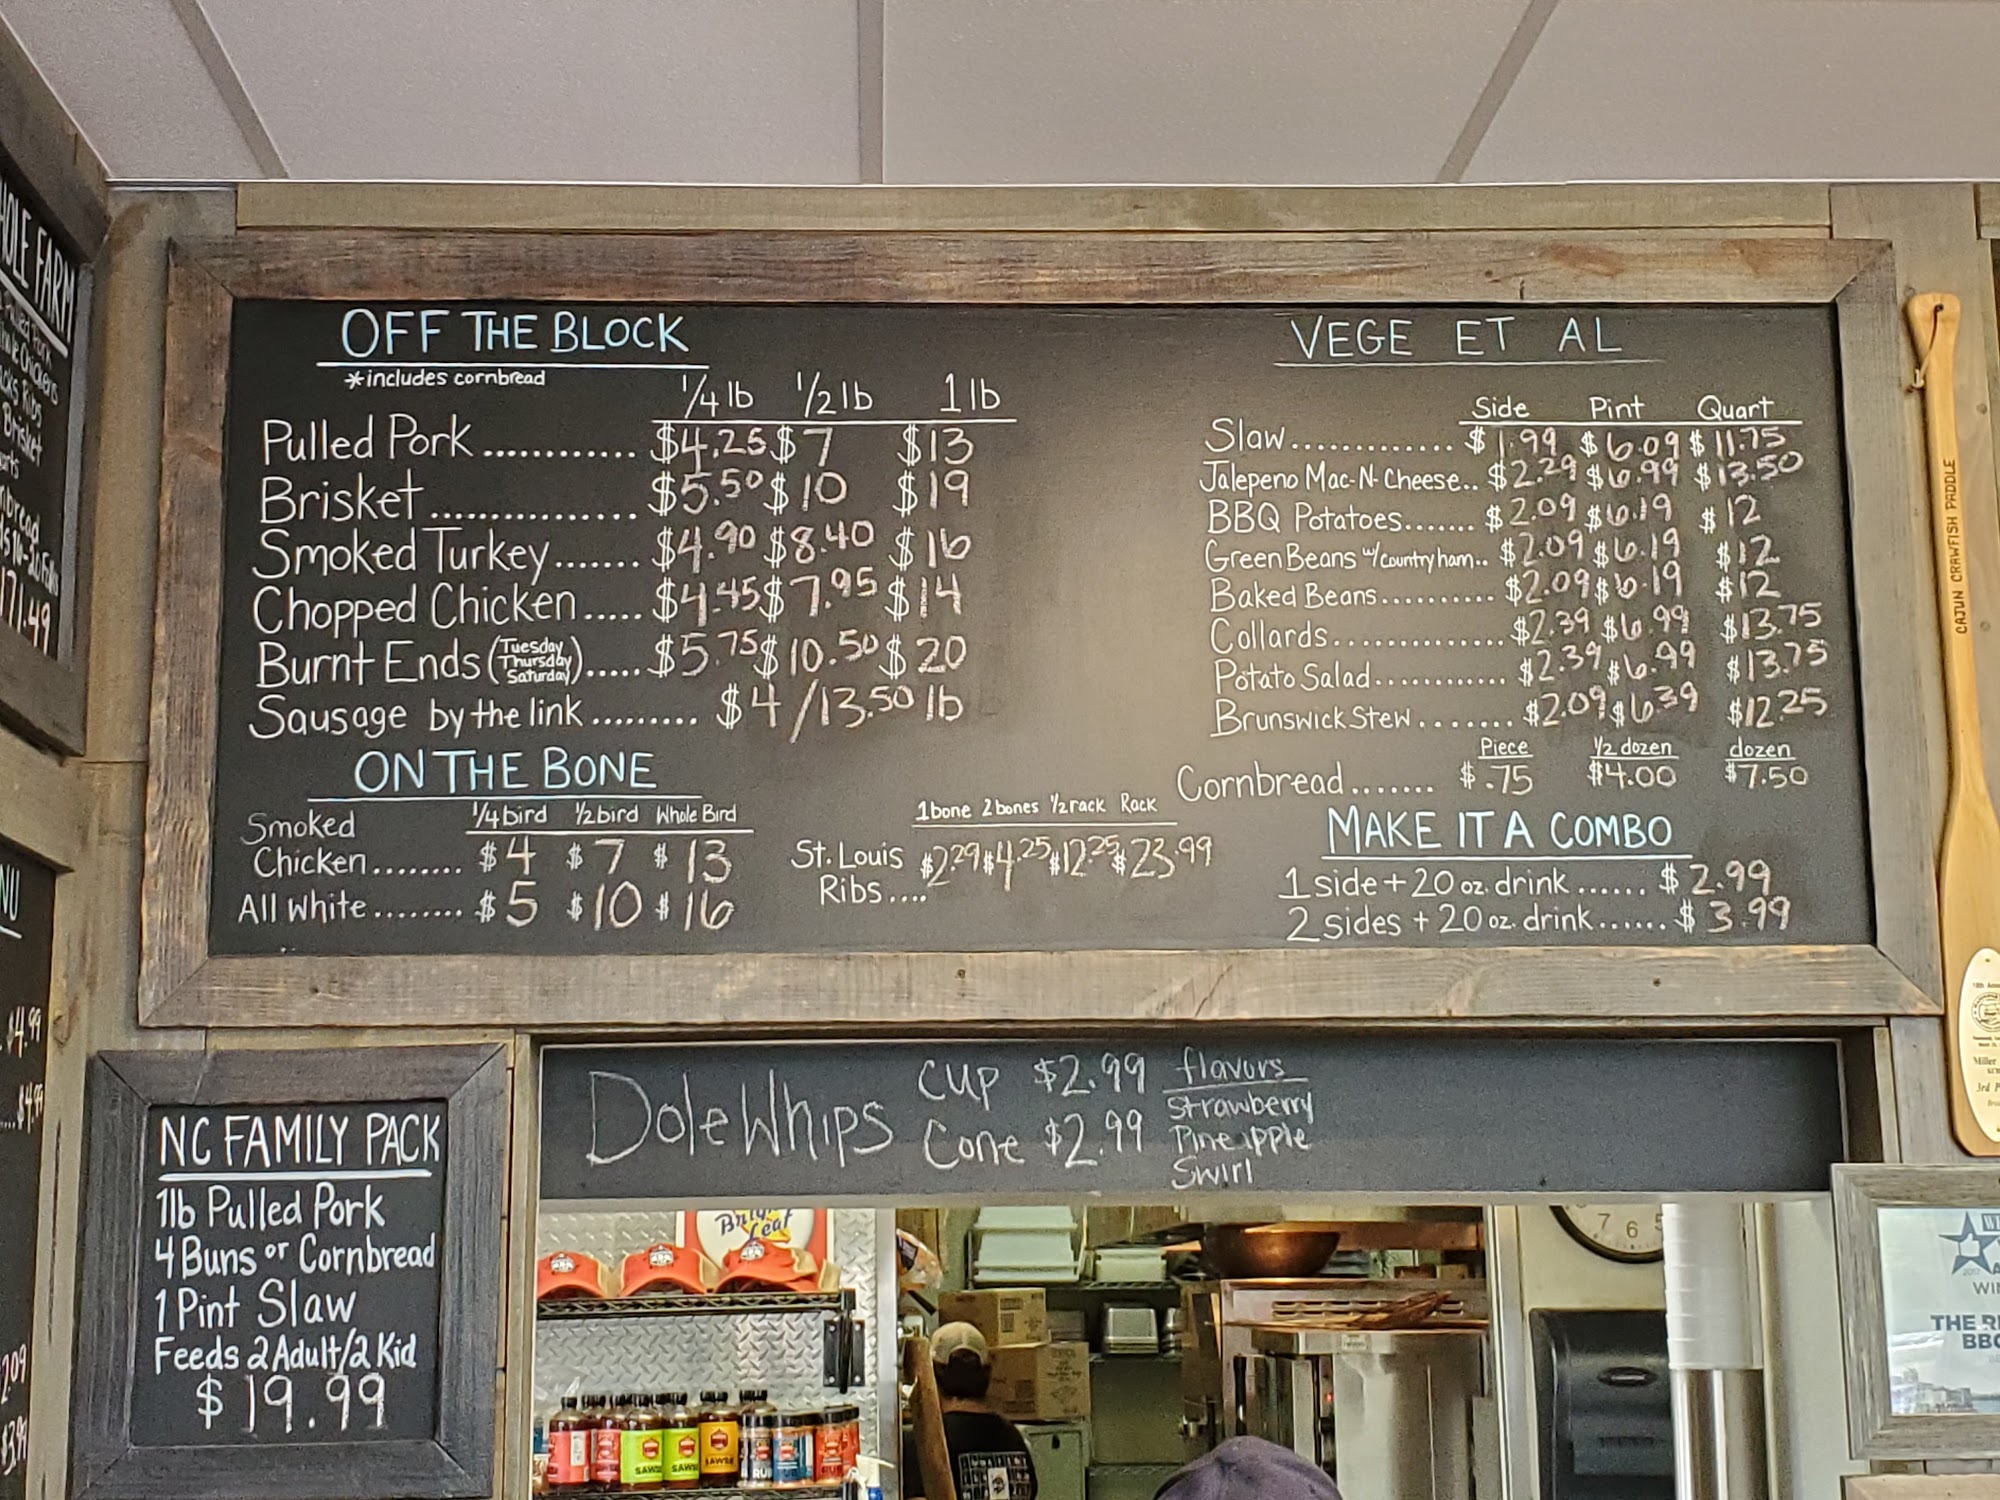 OFF THE BLOCK
*includes cornbread
1/4 lb 1/2 lb 1 lb
Pulled Pork ............ $4.25 $7 $13
Brisket ............... $5.50 $10 $19
Smoked Turkey ....... $4.90 $8.40 $16
Chopped Chicken ..... $4.45 $7.95 $14
Burnt Ends (Tuesday Thursday Saturday) ..... $5.75 $10.50 $20
Sausage by the link ......... $4/13.50 lb
ON THE BONE
1/4 bird 1/2 bird Whole Bird
Smoked
Chicken ........ $4 $7 $13
All White ........ $5 $10 $16
1 bone 2 bones 1/2 rack Rack
St. Louis $2.29 $4.25 $12.25 $23.99
Ribs ....
VEGE ET AL
Side Pint Quart
Slaw ............. $1.99 $6.09 $11.75
Jalepeno Mac-N-Cheese.. $2.29 $6.99 $13.50
BBQ Potatoes ....... $2.09 $6.19 $12
Green Beans w/country ham.. $2.09 $6.19 $12
Baked Beans .......... $2.09 $6.19 $12
Collards ............... $2.39 $6.99 $13.75
Potato Salad ............ $2.39 $6.99 $13.75
Brunswick Stew ....... $2.09 $6.39 $12.25
Piece 1/2 dozen dozen
Cornbread ....... $.75 $4.00 $7.50
MAKE IT A COMBO
1 side + 20 oz. drink ...... $2.99
2 sides + 20 oz. drink ...... $3.99
Dole Whips
Cup $2.99
Cone $2.99
flavors
Strawberry
Pineapple
Swirl
NC FAMILY PACK
1lb Pulled Pork
4 Buns or Cornbread
1 Pint Slaw
Feeds 2 Adult/2 Kid
$19.99
FARM
Pork
Chickens
Ribs
Brisket
171.49
NU
$4.99
$4.99
2.09
CAJUN CRAWFISH PADDLE
Miller
3rd
Leaf
SAWSE
7 6 5
WIN
THE
BBQ